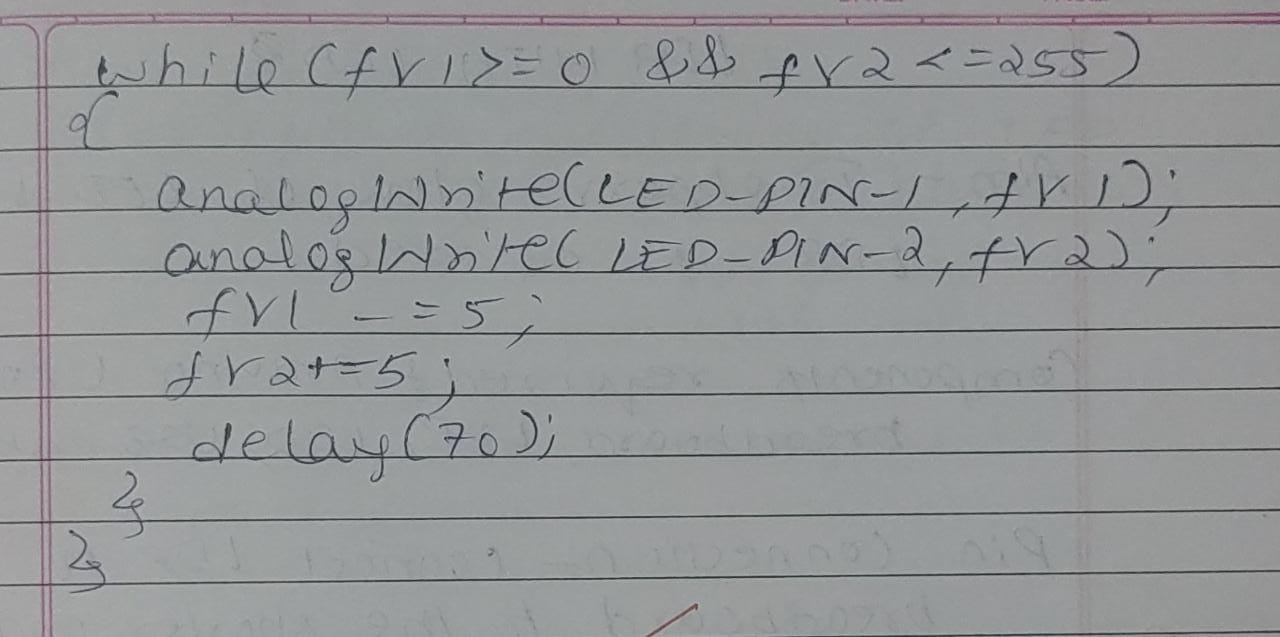 while (fV1>=0 && fV2 <=255)
{
analogWrite(LED-PIN-1, fV1);
analogWrite(LED-PIN-2, fV2);
fV1 -=5;
fV2+=5;
delay(70);
}
}